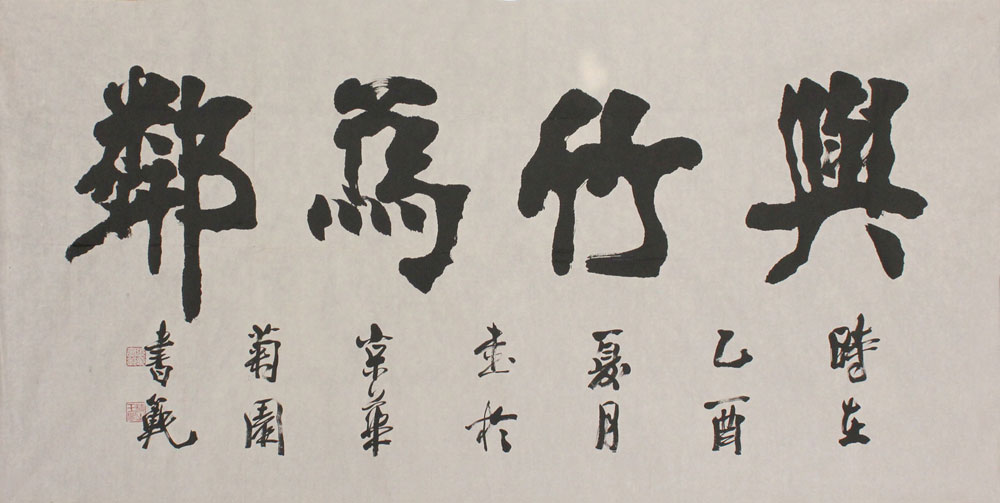 與竹為鄰
時在
乙酉
夏月
書於
京華
菊園
書範